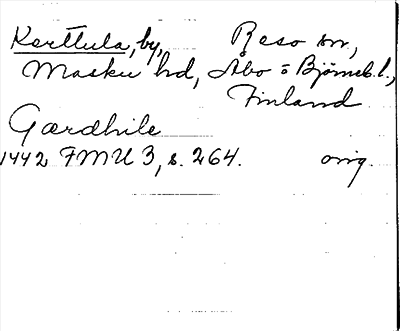 Kerttula, by, Reso sn,
Masku hd, Åbo o Björneb. l.,
Finland
Gærdhile
1442 FMU 3, s. 264. orig.